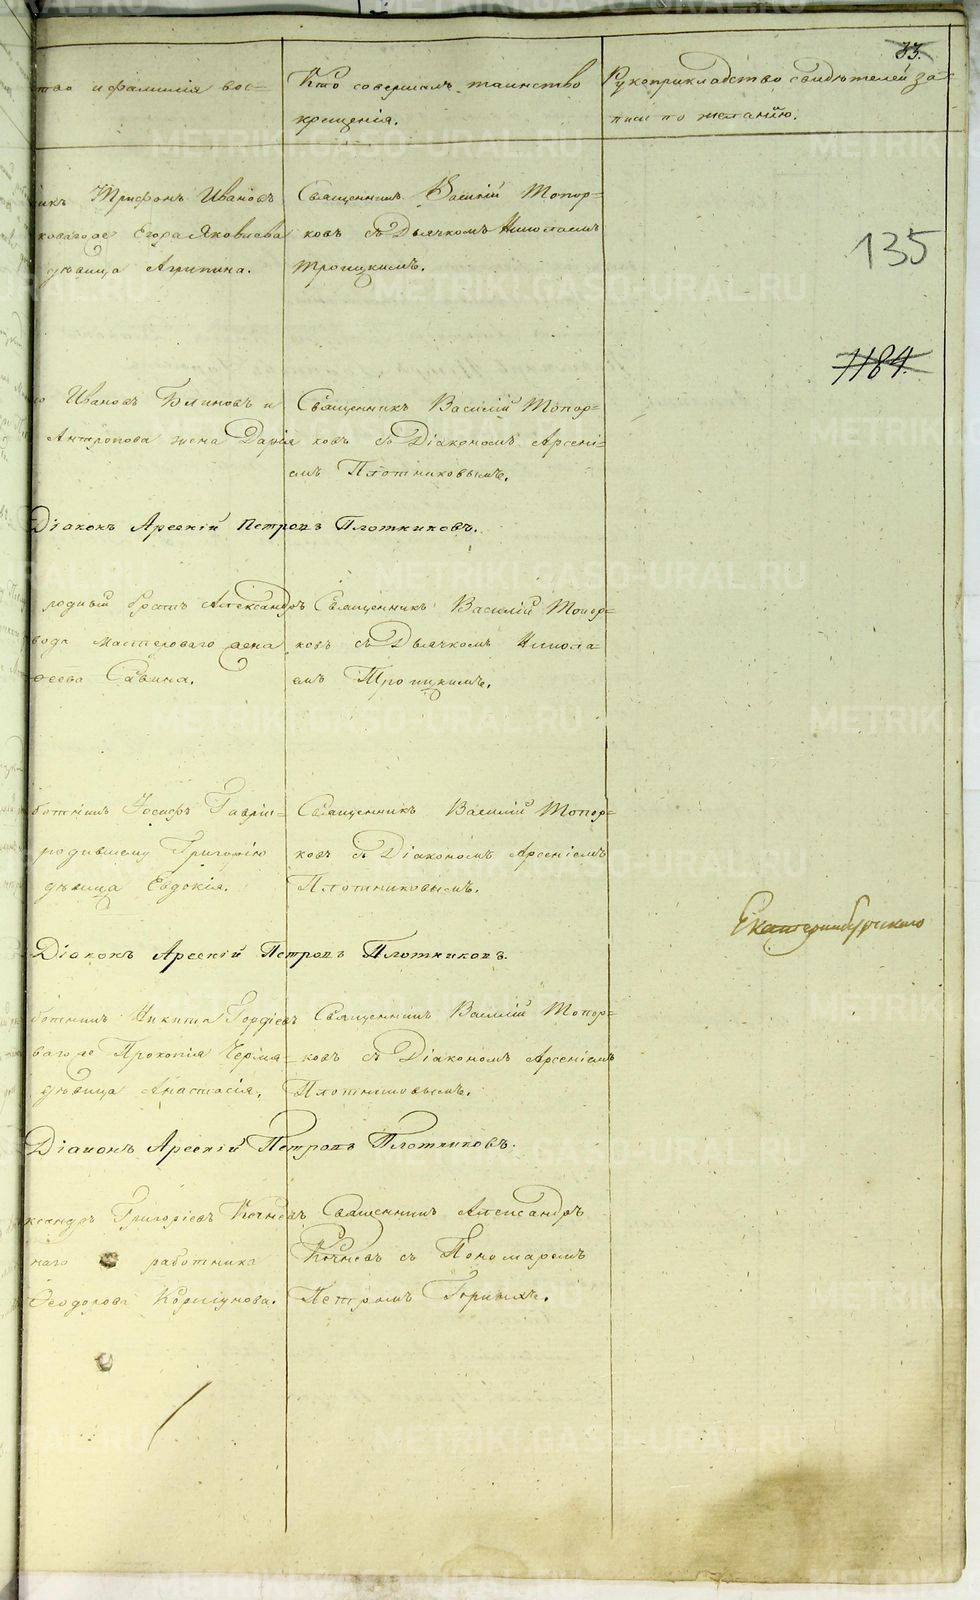 33.
ство и фамилія вос=
Кто совершалъ таинство
крещенія.
Рукоприкладство свидѣтелей за=
писи по желанію.
икъ Трифонъ Ивановъ
коваго же Егора Яковлева
дѣвица Агрипина.
Священникъ Василій Топор=
ковъ съ Дьячкомъ Николаемъ
Троицкимъ.
135
1184.
Ивановъ Блиновъ и
Антропова жена Дарія
Священникъ Василій Топор=
ковъ съ Діакономъ Арсені=
емъ Плотниковымъ.
Діаконъ Арсеній Петровъ Плотниковъ.
родный братъ Александръ
вода мастероваго жена
Савина.
Священникъ Василій Топор=
ковъ съ Дьячкомъ Никола
емъ Троицкимъ.
ботникъ Іосифъ Гаврил=
родившему Григорію
дѣвица Евдокія.
Священникъ Василій Топор=
ковъ съ Діакономъ Арсеніемъ
Плотниковымъ.
Екатеринбургскаго
Діаконъ Арсеній Петровъ Плотниковъ.
ботникъ Никита Гордѣевъ
ваго же Прокопія Черма=
дѣвица Анастасія.
Священникъ Василій Топор=
ковъ съ Діакономъ Арсеніемъ
Плотниковымъ.
Діаконъ Арсеній Петровъ Плотниковъ.
ксандръ Григорьевъ Кочневъ
наго работника
Ѳеодорова Коршунова.
Священникъ Александръ
Кочневъ съ Пономаремъ
Петромъ
METRIKI.GASO-URAL.RU